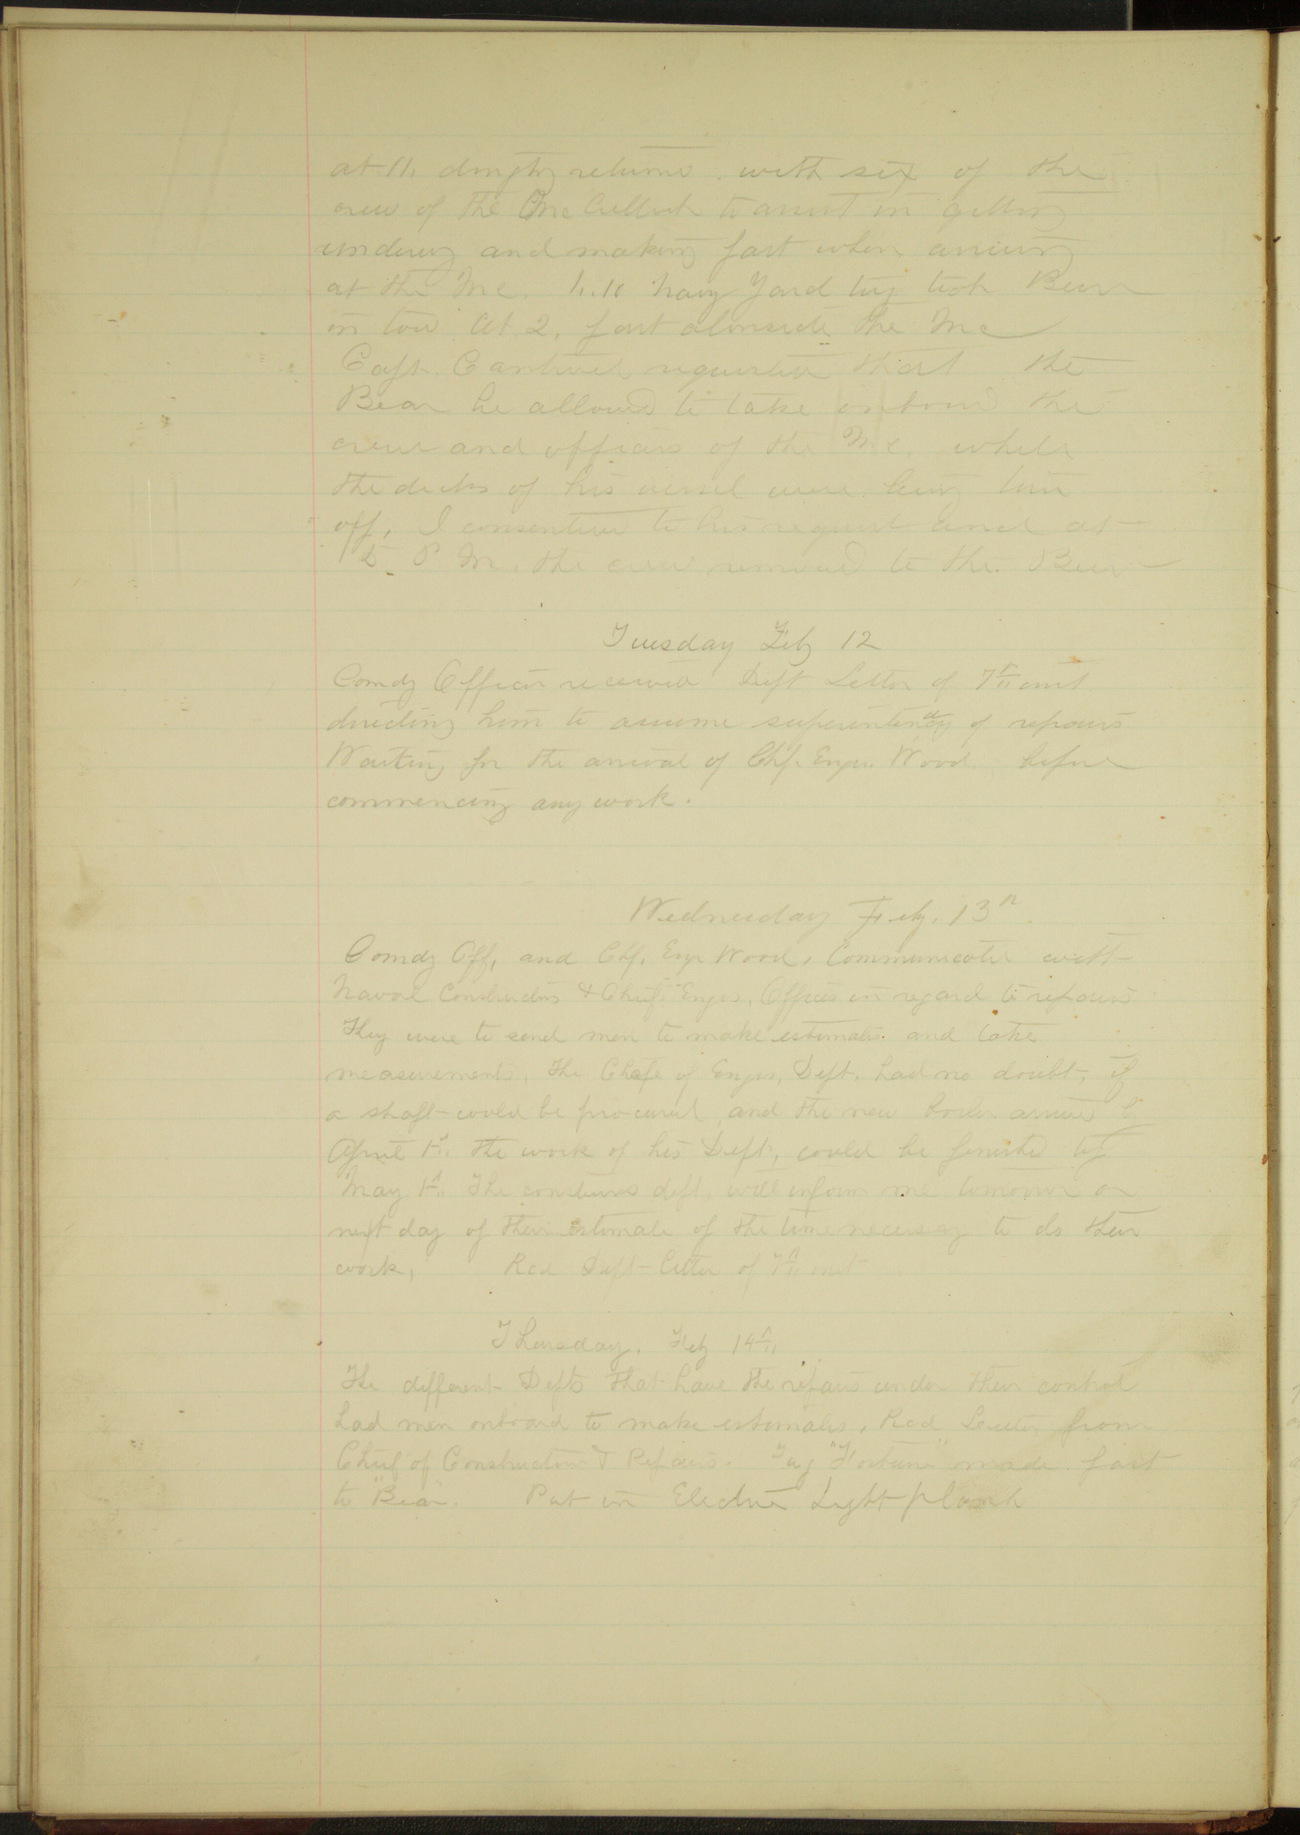 at 11. dinghy returned with six of the
crew of the McCulloch to assist in getting
underway and making fast when arriving
at the Mc. 1.10 Navy Yard tug took Bear
in tow. At 2, fast alongside the Mc
Capt. Cantwell requested that the
Bear be allowed to take onboard the
crew and officers of the Mc. while
the decks of his vessel were being torn
off, I consented to his request and at
5 P M. the crew removed to the Bear
Tuesday Feby 12
Comdg Officer received Dept Letter of 7th inst
directing him to assume superintendency of repairs
Waiting for the arrival of Chf. Engr. Wood before
commencing any work.
Wednesday Feby. 13th
Comdg Off, and Chf. Engr Wood, Communicated with
Naval Constructors & Chief Engrs, Offices in regard to repairs
They were to send men to make estimates and take
measurements. The Chief of Engrs, Dept. had no doubt, if
a shaft could be procured, and the new boiler arrived by
April 1st. the work of his Dept, could be finished by
May 1st. The dept, will inform me tomorrow or
next day of their Estimate of the time necessary to do their
work, Rcd Dept Letter of 7th inst
Thursday, Feby 14th
The different Depts that have the repairs under their control
had men onboard to make estimates, Rcd Letter from
Chief of Construction & Repairs. Tug "Fortune" made fast
to "Bear". Put in Electric Light plank